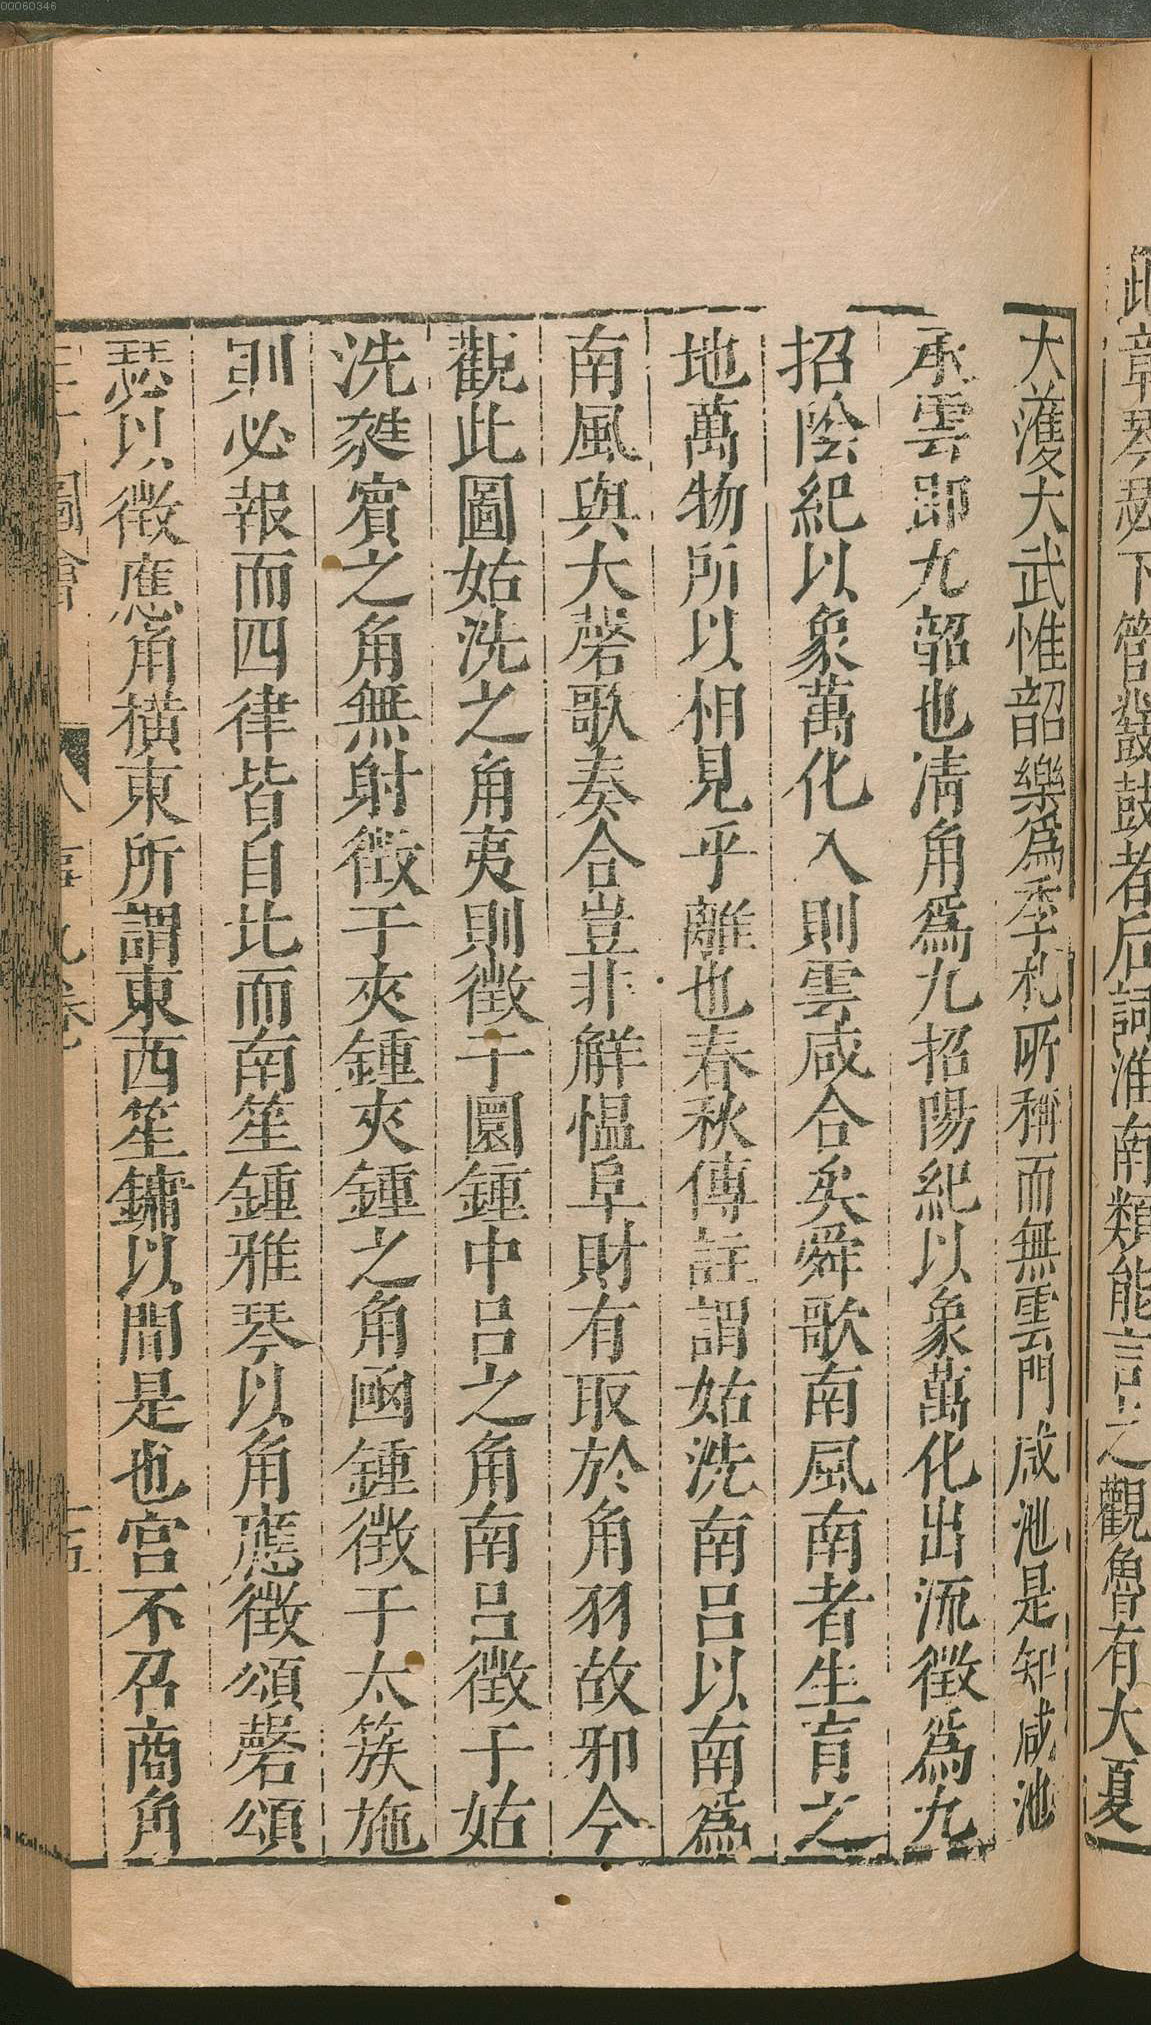 此章琴瑟下管鼗鼓者后詞淮南類能言之觀魯有大夏
大濩大武惟韶樂爲季札所稱而無雲門咸池是知咸池
承雲卽九韶也清角爲九招陽紀以象萬化出流徵爲九
招陰紀以象萬化入則雲咸合矣舜歌南風南者生育之
地萬物所以相見乎離也春秋傳註謂姑洗南呂以南爲
南風與大磬歌奏合豈非解慍阜財有取於角羽故邪今
觀此圖姑洗之角夷則徵于圜鍾中呂之角南呂徵于姑
洗蕤賓之角無射徵于夾鍾夾鍾之角凾鍾徵于太簇施
則必報而四律皆自比而南笙鍾雅琴以角應徵頌磬頌
瑟以徵應角橫東所謂東西笙鏞以間是也宮不召商角
三才圖會
八
九卷
十五
00060346